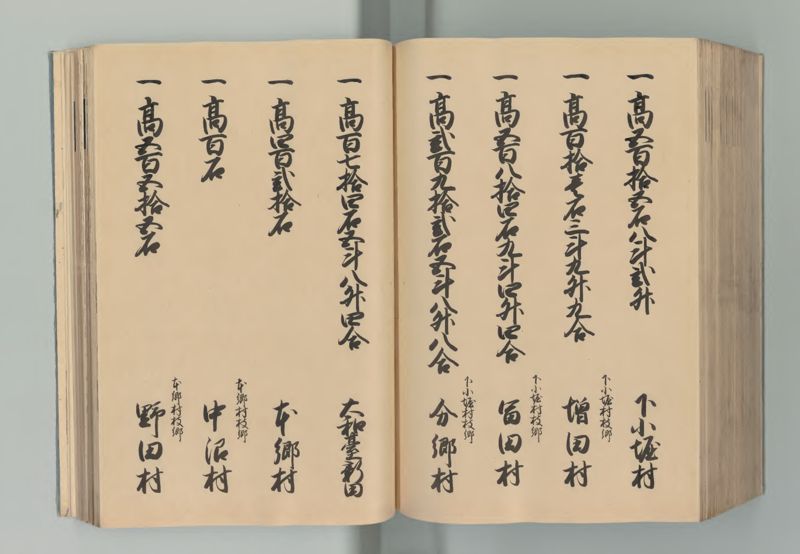 一高五百拾五石八斗弐升
下小堀村
一高百拾壱石三斗九升九合
下小堀村枝郷
増田村
一高五百八拾四石九斗四升四合
下小堀村枝郷
冨田村
一高弐百九拾弐石五斗八升八合
下小堀村枝郷
分郷村
一高百七拾四石五斗八升四合
大和臺新田
一高四百弐拾石
本郷村
一高百石
本郷村枝郷
中沼村
一高五百五拾五石
本郷村枝郷
野田村